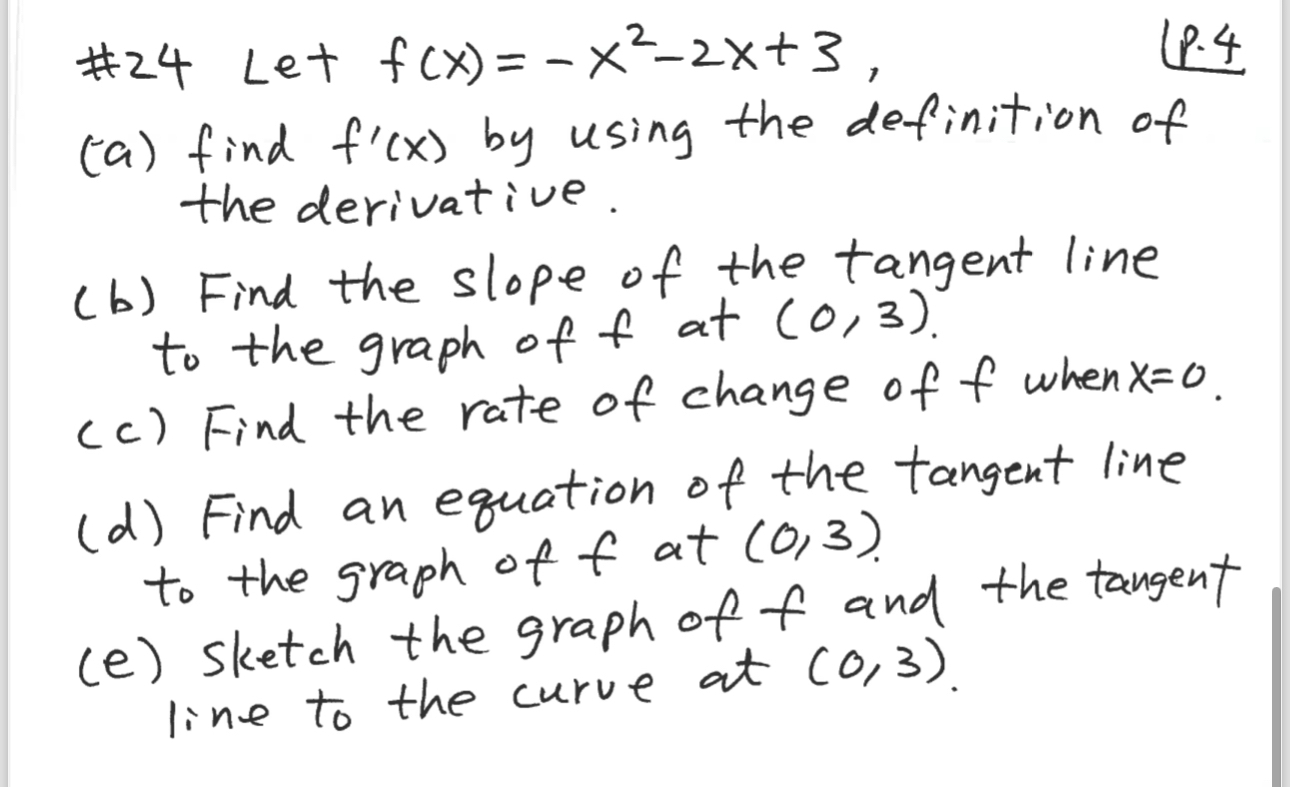 #24 Let f(x) = -x²-2x+3, P.4
(a) find f'(x) by using the definition of
the derivative.
(b) Find the slope of the tangent line
to the graph of f at (0,3).
(c) Find the rate of change of f when x=0.
(d) Find an equation of the tangent line
to the graph of f at (0,3).
(e) sketch the graph of f and the tangent
line to the curve at (0,3).